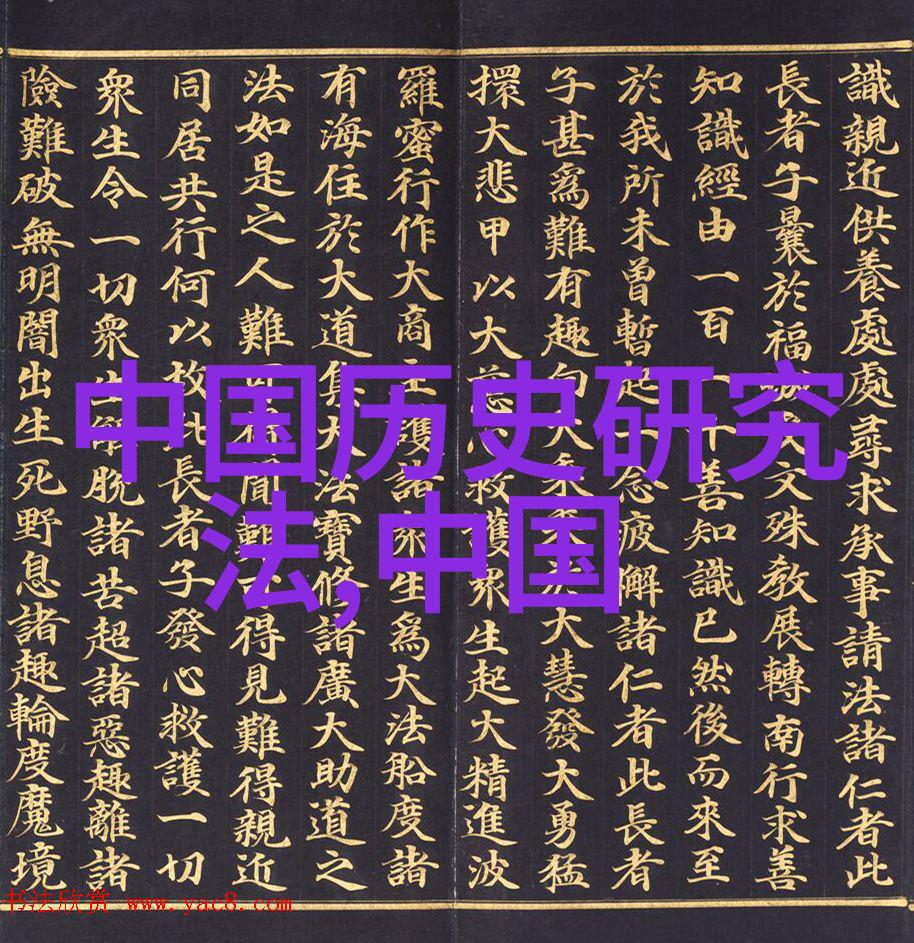 識親近供養處處尋求承事請法諸仁者此
長者子曩於福城受文殊教展轉南行求善
知識經由一百一十善知識已然後而來至
於我所未曾暫起一念疲解諸仁者此長者
子甚爲難有趣向大乘乘於大慧發大勇猛
擐大悲甲以大慈心救護衆生起大精進波
羅蜜行作大商主護諸衆生爲大法船度諸
有海住於大道集大法寶修諸廣大助道之
法如是之人難可得聞難可得見難得親近
同居共行何以故此長者子發心救護一切
衆生令一切衆生解脫諸苦超諸惡趣離諸
險難破無明闇出生死野息諸趣輪度魔境
中国历史研究
法,中国
书法欣赏 www.yac8.com